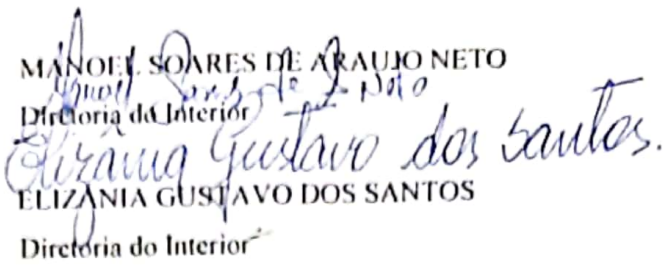 MANOEL SOARES DE ARAUJO NETO
Manoel Soares de A Neto
Diretoria do Interior
Elizânia Gustavo dos Santos.
ELIZANIA GUSTAVO DOS SANTOS
Diretoria do Interior